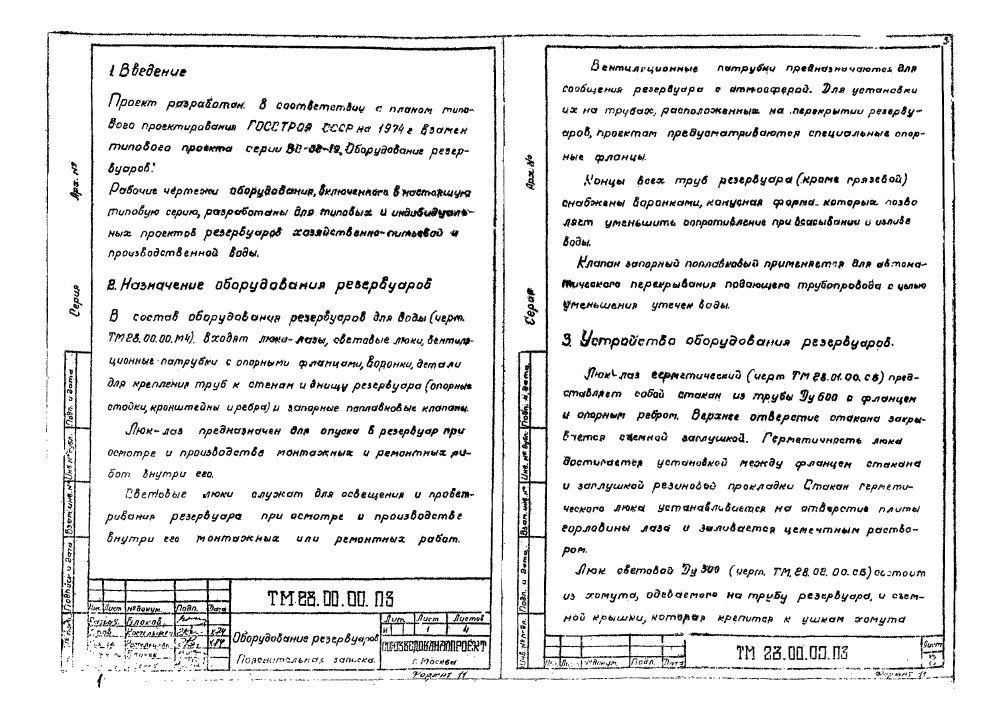 1. Введение
Проект разработан в соответствии с планом типо-
вого проектирования ГОССТРОЯ СССР на 1974 г взамен
типового проекта серии ВС-02-19 „Оборудование резер-
вуаров."
Рабочие чертежи оборудования, включенного в настоящую
типовую серию, разработаны для типовых и индивидуаль-
ных проектов резервуаров хозяйственно-питьевой и
производственной воды.
2. Назначение оборудования резервуаров
В состав оборудования резервуаров для воды (черт.
ТМ28.00.00.М4). Входят люки-лазы, световые люки, вентиля-
ционные патрубки с опорными фланцами, воронки, детали
для крепления труб к стенам и днищу резервуара (опорные
стойки, кронштейны и ребра) и запорные поплавковые клапаны.
Люк-лаз предназначен для опуска в резервуар при
осмотре и производстве монтажных и ремонтных ра-
бот внутри его.
Световые люки служат для освещения и провет-
ривания резервуара при осмотре и производстве
внутри его монтажных или ремонтных работ.
Арх. №
Серия
Подп. и дата
Инв. № дубл.
Взам. инв. №
Подпись и дата
Изм. Лист № докум. Подп. Дата
ТМ 28.00.00.ПЗ
Оборудование резервуаров
Пояснительная записка.
Лит. Лист Листов
И 1 4
СОЮЗВОДОКАНАЛПРОЕКТ
г. Москва
Формат 11
1
3
Вентиляционные патрубки предназначаются для
сообщения резервуара с атмосферой. Для установки
их на трубах, расположенных на перекрытии резерву-
аров, проектом предусматриваются специальные опор-
ные фланцы.
Концы всех труб резервуара (кроме грязевой)
снабжены воронками, конусная форма которых позво
ляет уменьшить сопротивление при всасывании и изливе
воды.
Клапан запорный поплавковый применяется для автома-
тического перекрывания подающего трубопровода с целью
уменьшения утечек воды.
3. Устройство оборудования резервуаров.
Люк-лаз герметический (черт ТМ 28.01.00.СБ) пред-
ставляет собой стакан из трубы Ду 600 с фланцем
и опорным ребром. Верхнее отверстие стакана закры-
вается съемной заглушкой. Герметичность люка
достигается установкой между фланцем стакана
и заглушкой резиновой прокладки Стакан гермети-
ческого люка устанавливается на отверстие плиты
горловины лаза и заливается цементным раство-
ром.
Люк световой Ду 300 (черт. ТМ.28.02.00.СБ) состоит
из хомута, одеваемого на трубу резервуара, и съем-
ной крышки, которая крепится к ушкам хомута
Арх. №
Серия
Подп. и дата
Инв. № дубл.
Взам. инв. №
Подп. и дата
Инв. № подл.
Изм. Лист № докум. Подп. Дата
ТМ 28.00.00.ПЗ
Лист
Формат 11